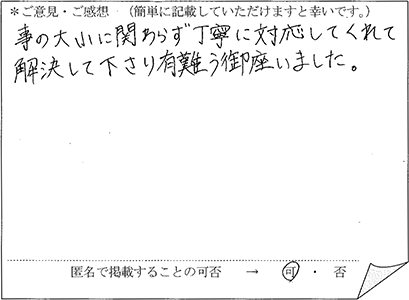 *ご意見・ご感想 (簡単に記載していただけますと幸いです。)
事の大小に関わらず丁寧に対応してくれて
解決して下さり有難う御座いました。
匿名で掲載することの可否 → 可 ・ 否